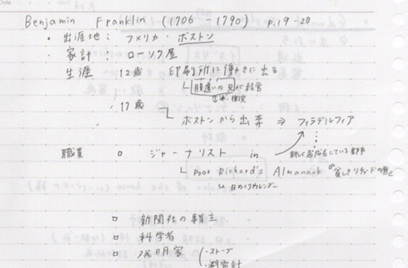 Benjamin Franklin (1706 - 1790) p.19-20
・出涯地: アメリカ・ボストン
・家計: ローソク屋
生涯 12歳 印刷所に働きに出る
腹違いの兄が経営
17歳
ボストンから出奔 ⇒ フィラデルフィア
職業 ジャーナリスト in
Poor Richard's Almanack
日めくりカレンダー
新聞社の事主
科学者
発明家 ・ストーブ
・避雷針